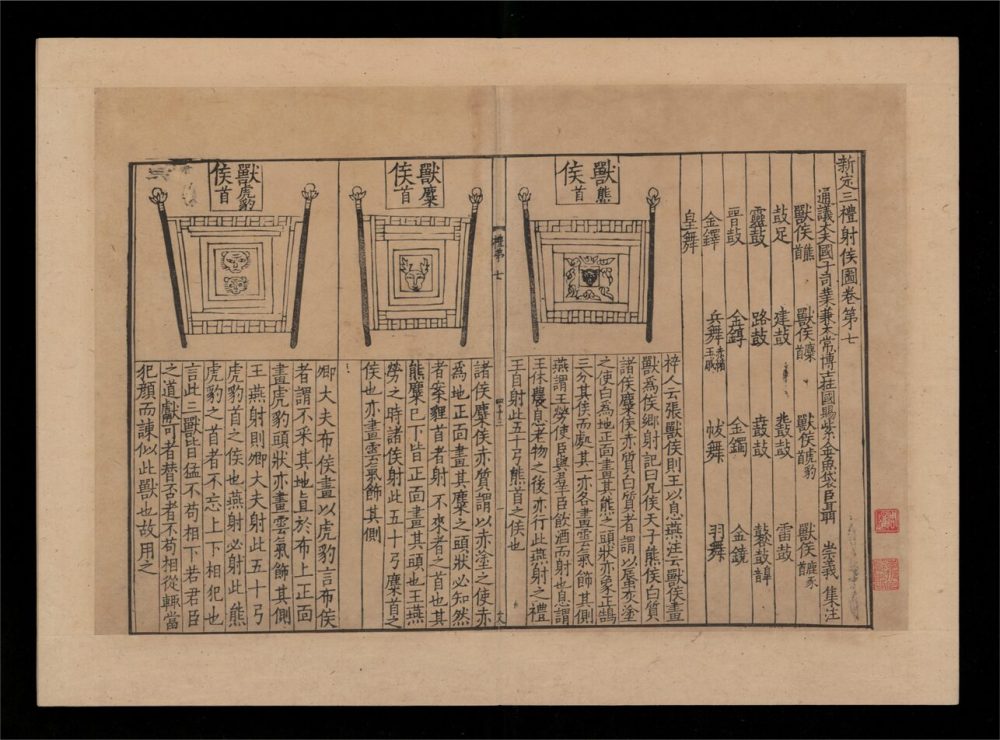 新定三禮射侯圖卷第七
通議大夫國子司業兼太常博士柱國賜紫金魚袋臣聶 崇義 集注
獸侯熊首 獸侯麋首 獸侯虎豹首 獸侯鹿豕首
鼓足 建鼓 鼗鼓 雷鼓
靈鼓 路鼓 鼖鼓 鼛鼓
晉鼓 金錞 金鐲 金鐃
金鐸 兵舞 帗舞 羽舞
皇舞
獸侯熊首
梓人云張獸侯則王以息燕注云獸侯畫
獸為侯鄉射記曰凡侯天子熊侯白質
諸侯麋侯赤質白質者謂以蜃灰塗
之使白為地正面畫其熊之頭狀亦象王鵠
三分其侯而處其一亦各畫雲氣飾其側
燕謂王勞使臣與羣臣飲酒而射也息謂
王休農息老物之後亦行此燕射之禮
王自射此五十弓熊首之侯也
禮第七
獸侯麋首
諸侯麋侯赤質謂以赤塗之使赤
為地正面畫其麋之頭狀必知然
者案貍首者射不來者之首也其
熊麋已下皆正面畫其頭也王燕
勞之時諸侯射此五十弓麋首之
侯也亦畫雲氣飾其側
獸侯虎豹首
卿大夫布侯畫以虎豹言布侯
者謂不采其地直於布上正面
畫虎豹頭狀亦畫雲氣飾其側
王燕射則卿大夫射此五十弓
虎豹首之侯也燕射必射此熊
虎豹之首者不忘上下相犯也
言此三獸皆猛不苟相下若君臣
之道獻可者替否者不苟相從輒當
犯顏而諫似此獸也故用之